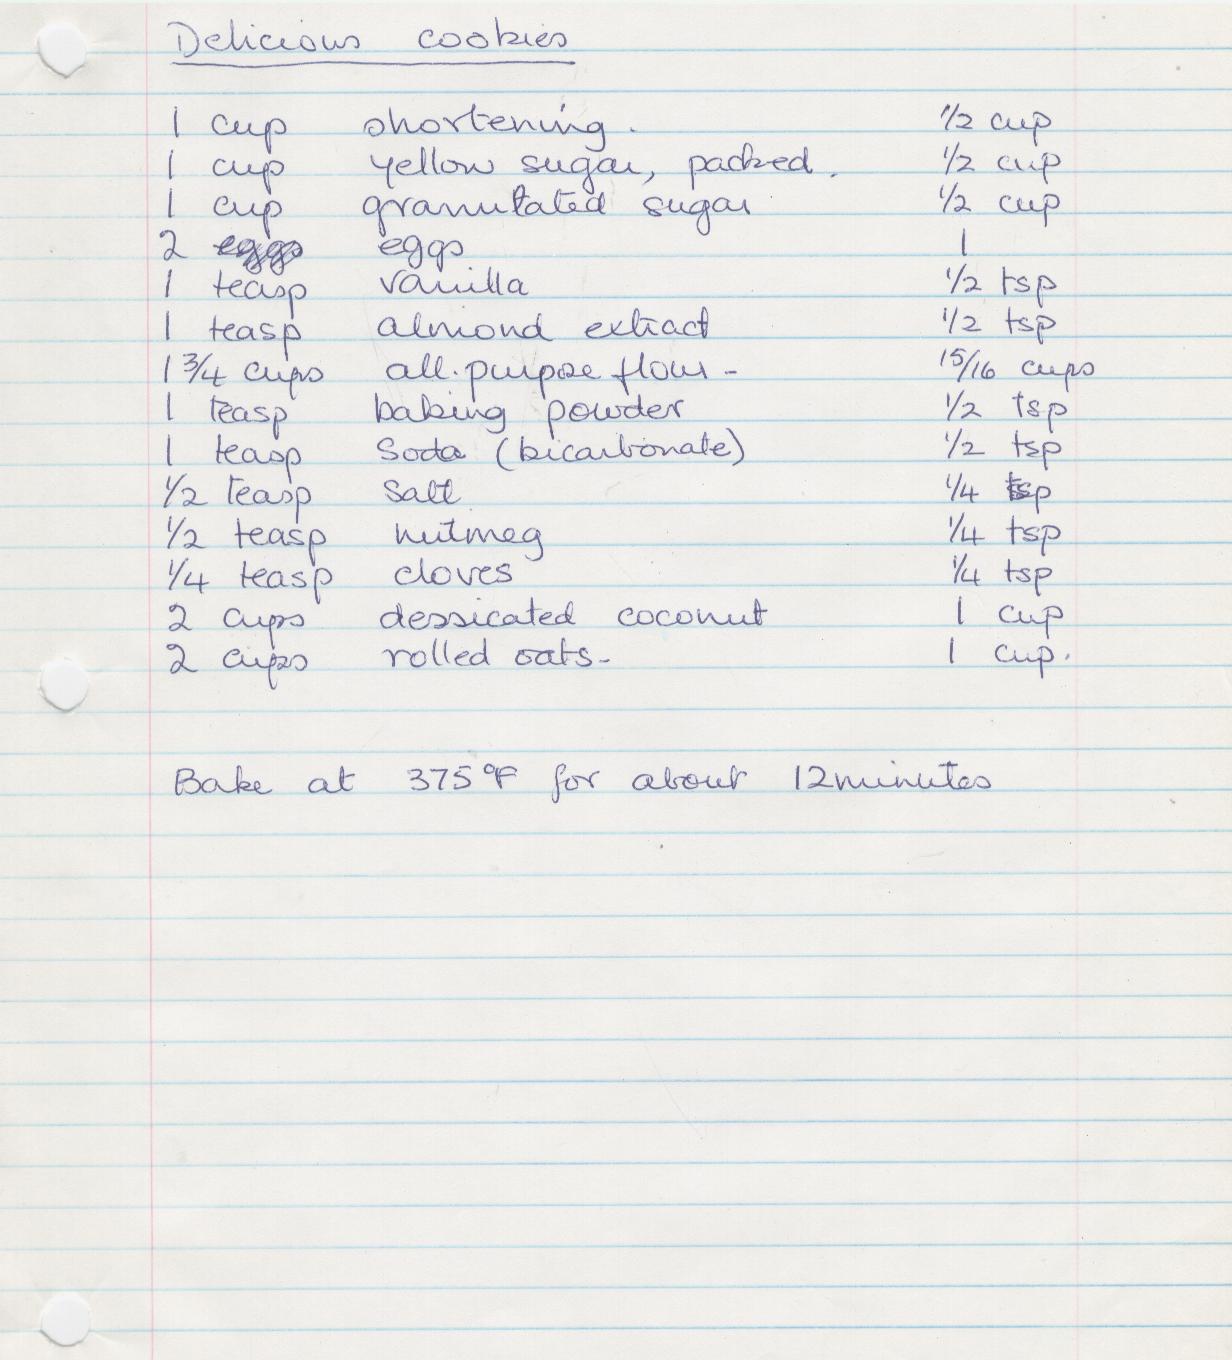 Delicious cookies
1 cup shortening. 1/2 cup
1 cup yellow sugar, packed. 1/2 cup
1 cup granulated sugar 1/2 cup
2 eggs eggs 1
1 teasp vanilla 1/2 tsp
1 teasp almond extract 1/2 tsp
1 3/4 cups all-purpose flour - 15/16 cups
1 teasp baking powder 1/2 tsp
1 teasp Soda (bicarbonate) 1/2 tsp
1/2 teasp Salt 1/4 tsp
1/2 teasp nutmeg 1/4 tsp
1/4 teasp cloves 1/4 tsp
2 cups dessicated coconut 1 cup
2 cups rolled oats- 1 cup.
Bake at 375°F for about 12 minutes